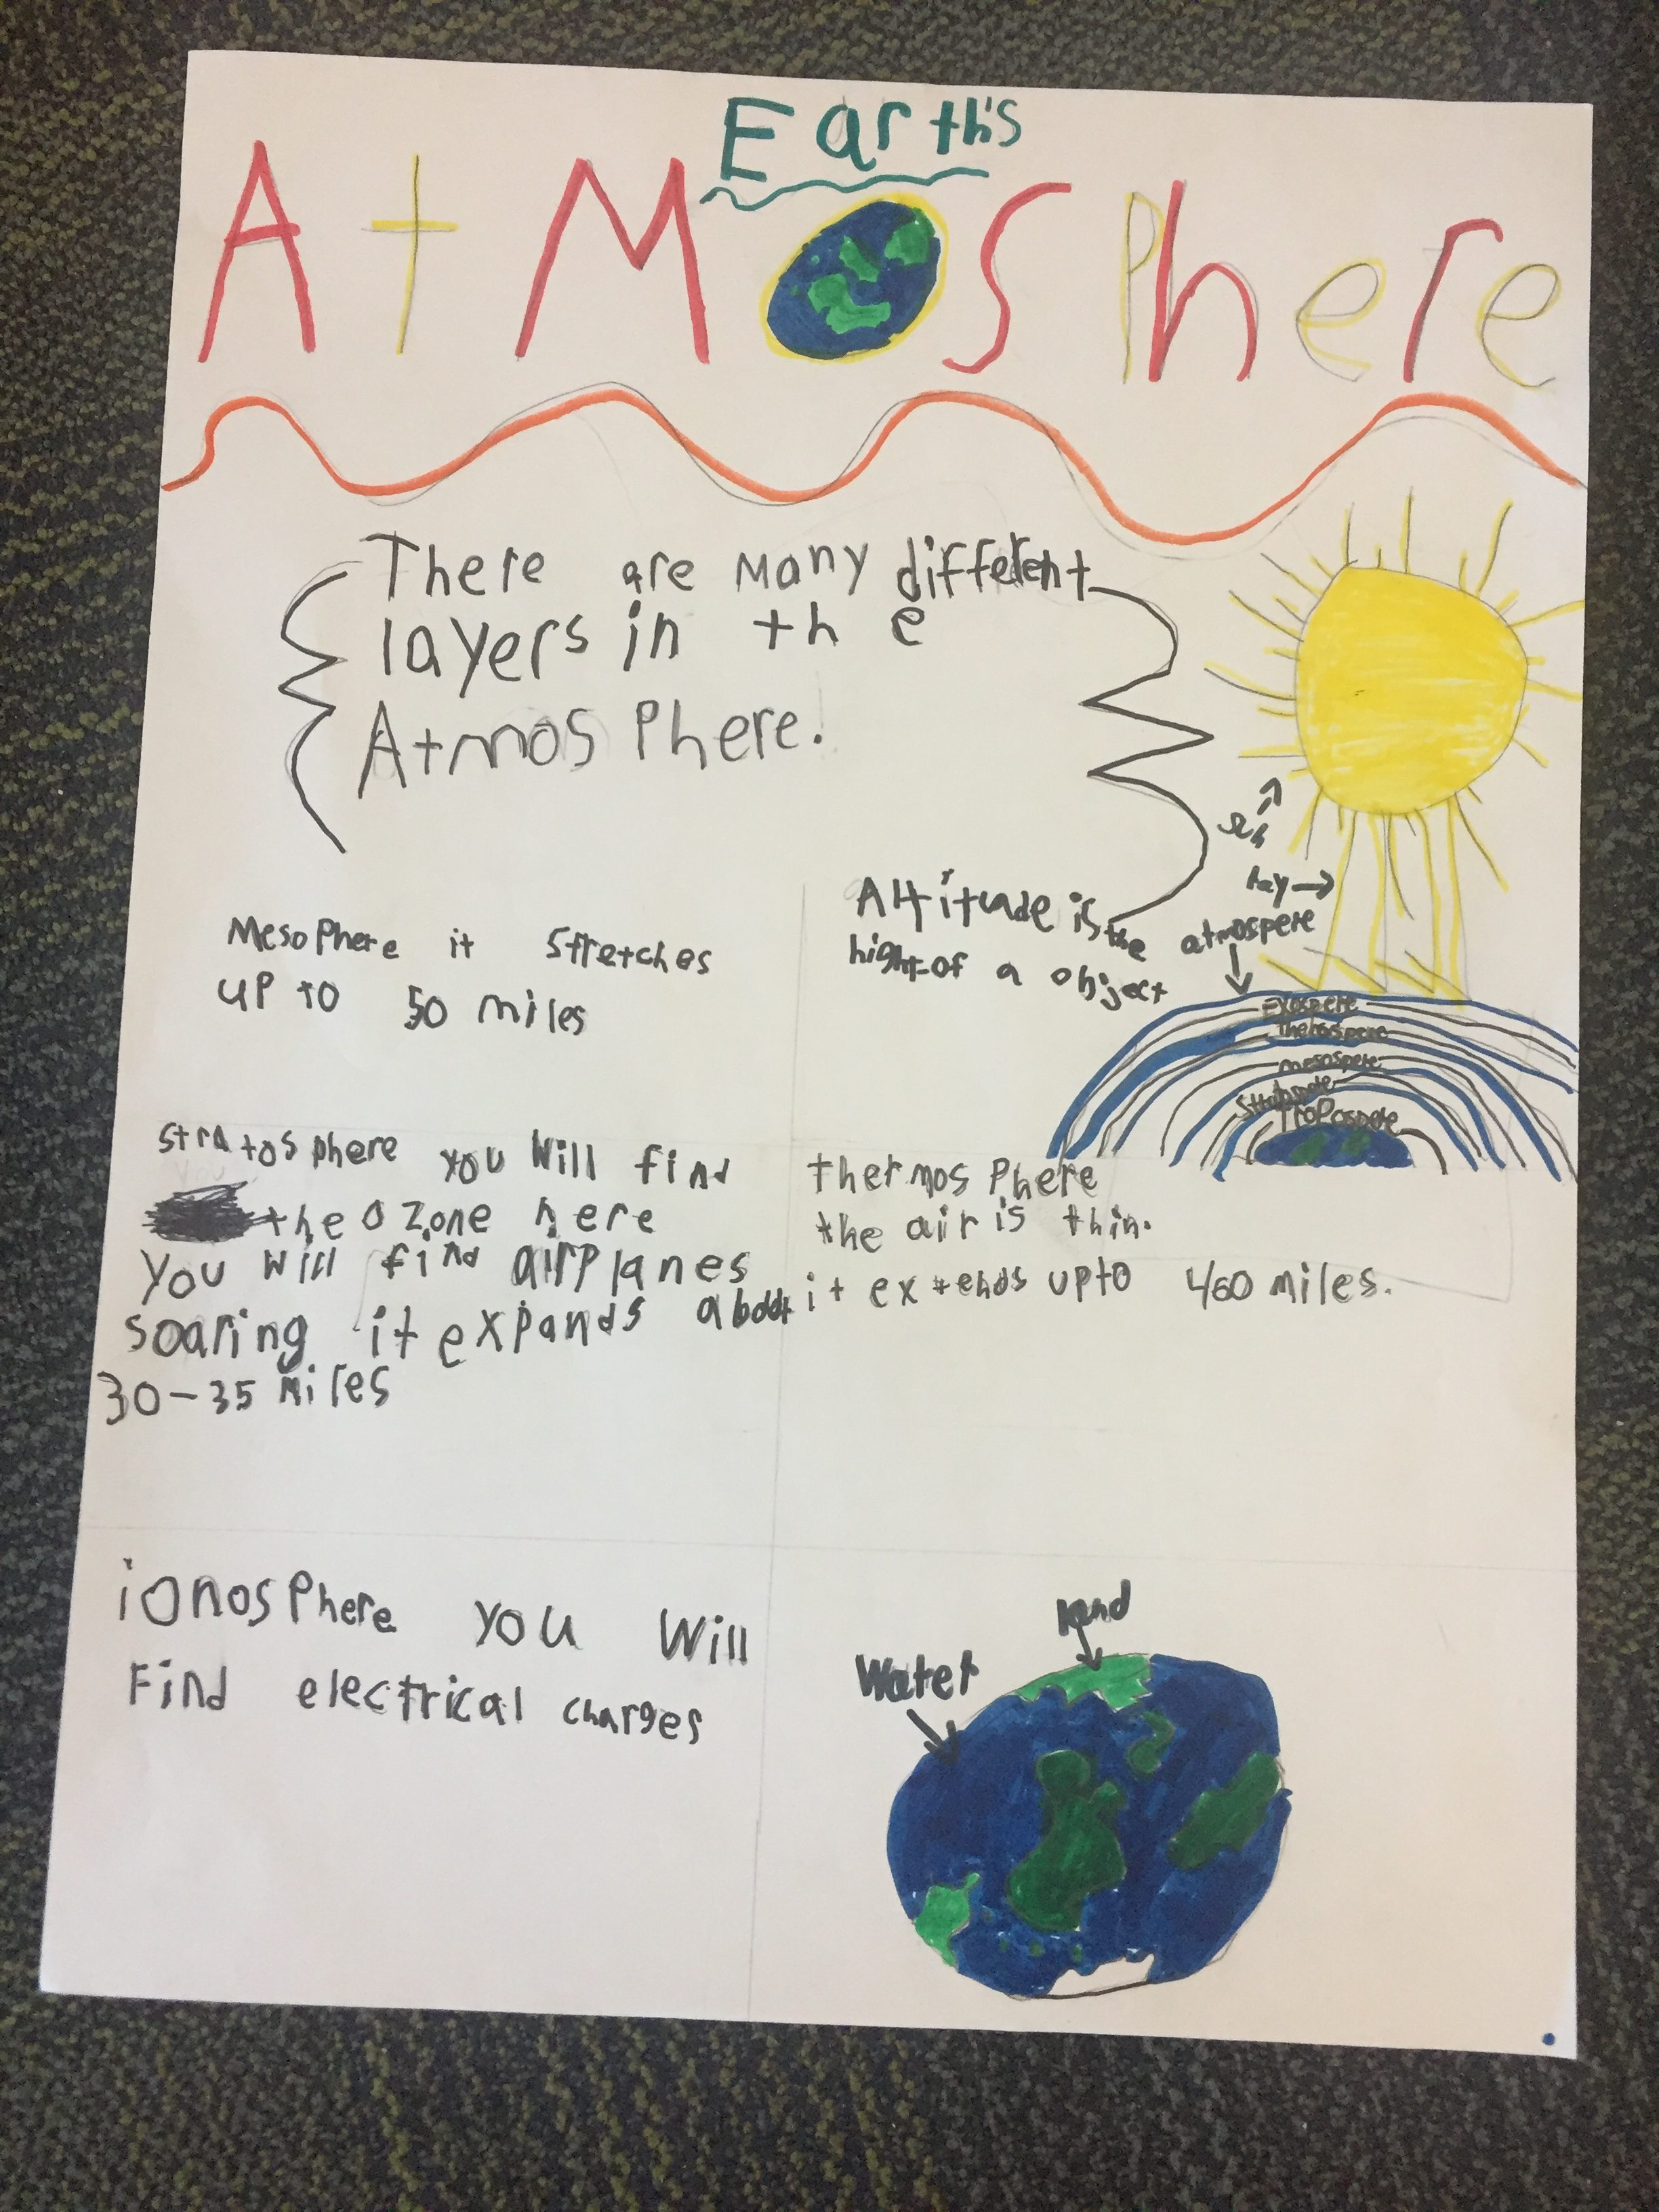 Earth's
AtMOSPhere
There are Many different
layers in the
AtmosPhere.
MesoPhere it Stretches
up to 50 miles
Altitude is the
hight of a object
sun
ray
atmospere
Exospere
Thermospere
mesospere
Stratospere
TroPospere
stratosphere you will find
the Ozone here
you will find airplanes
soaring it expands about
30-35 Miles
thermosPhere
the air is thin.
it extends up to 460 miles.
ionosPhere you Will
Find electrical charges
land
Water